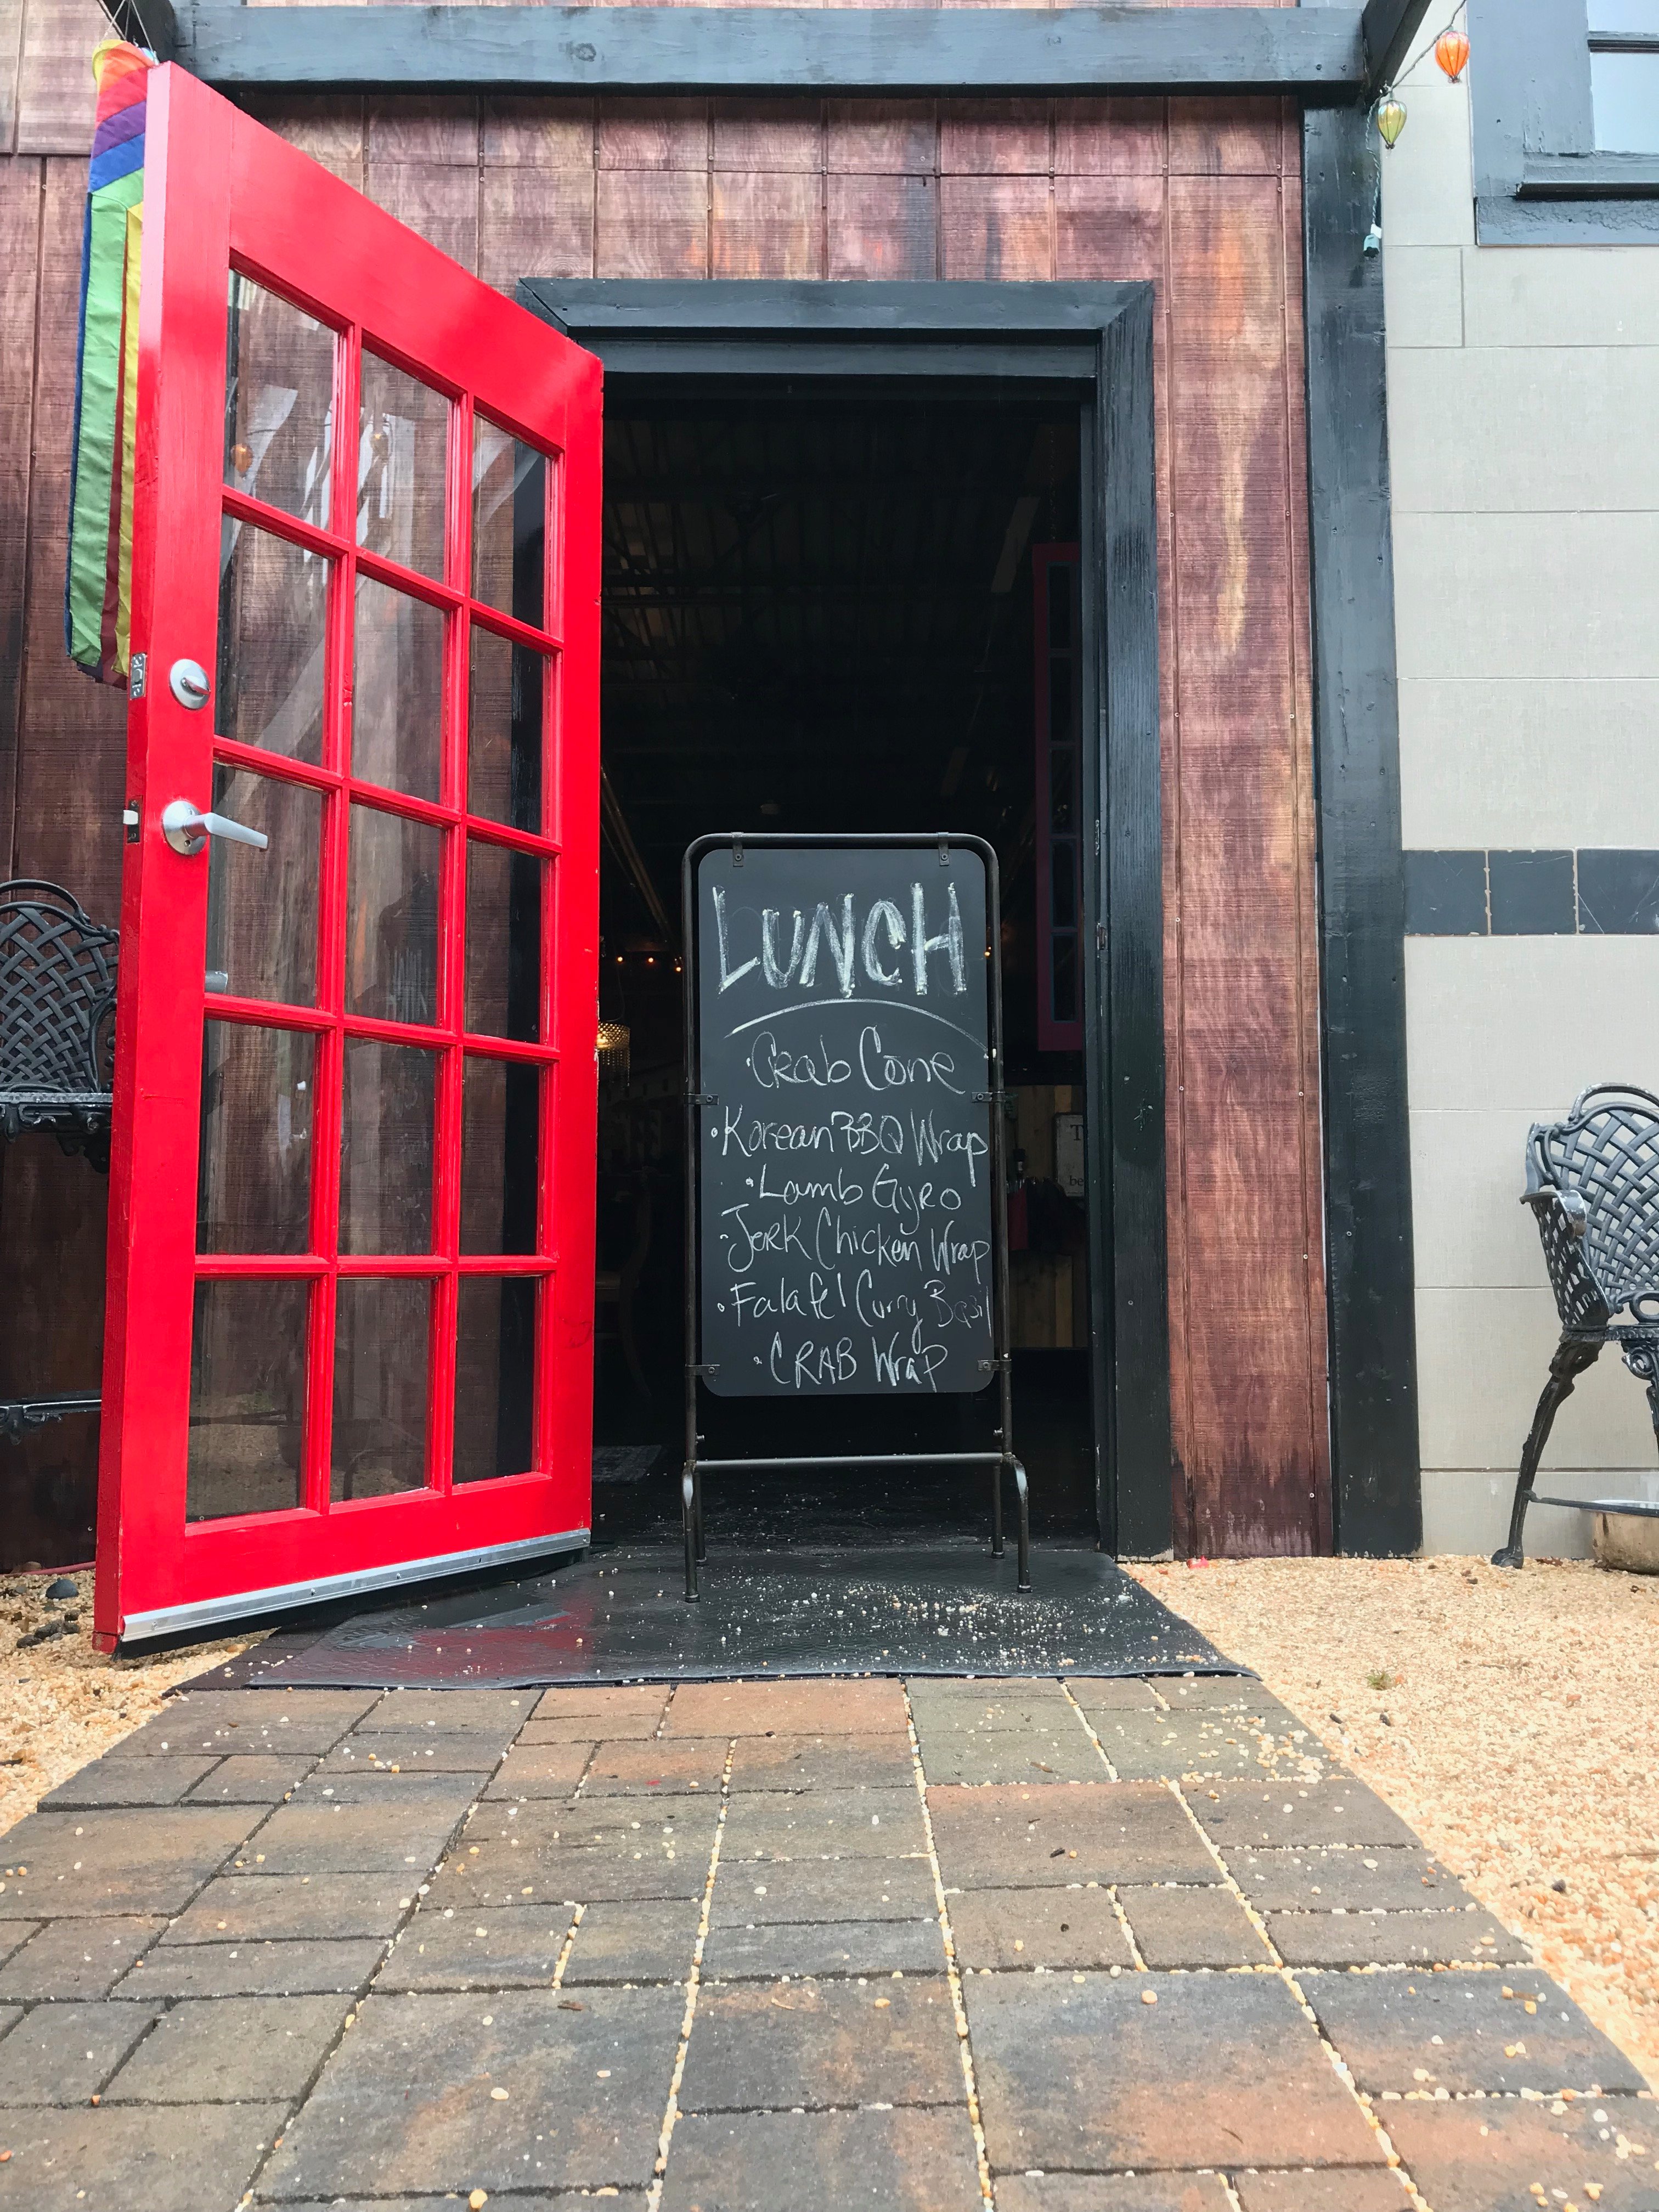 LUNCH
·Crab Cone
·Korean BBQ Wrap
·Lamb Gyro
·Jerk Chicken Wrap
·Falafel Curry Basil
·CRAB Wrap
T
be